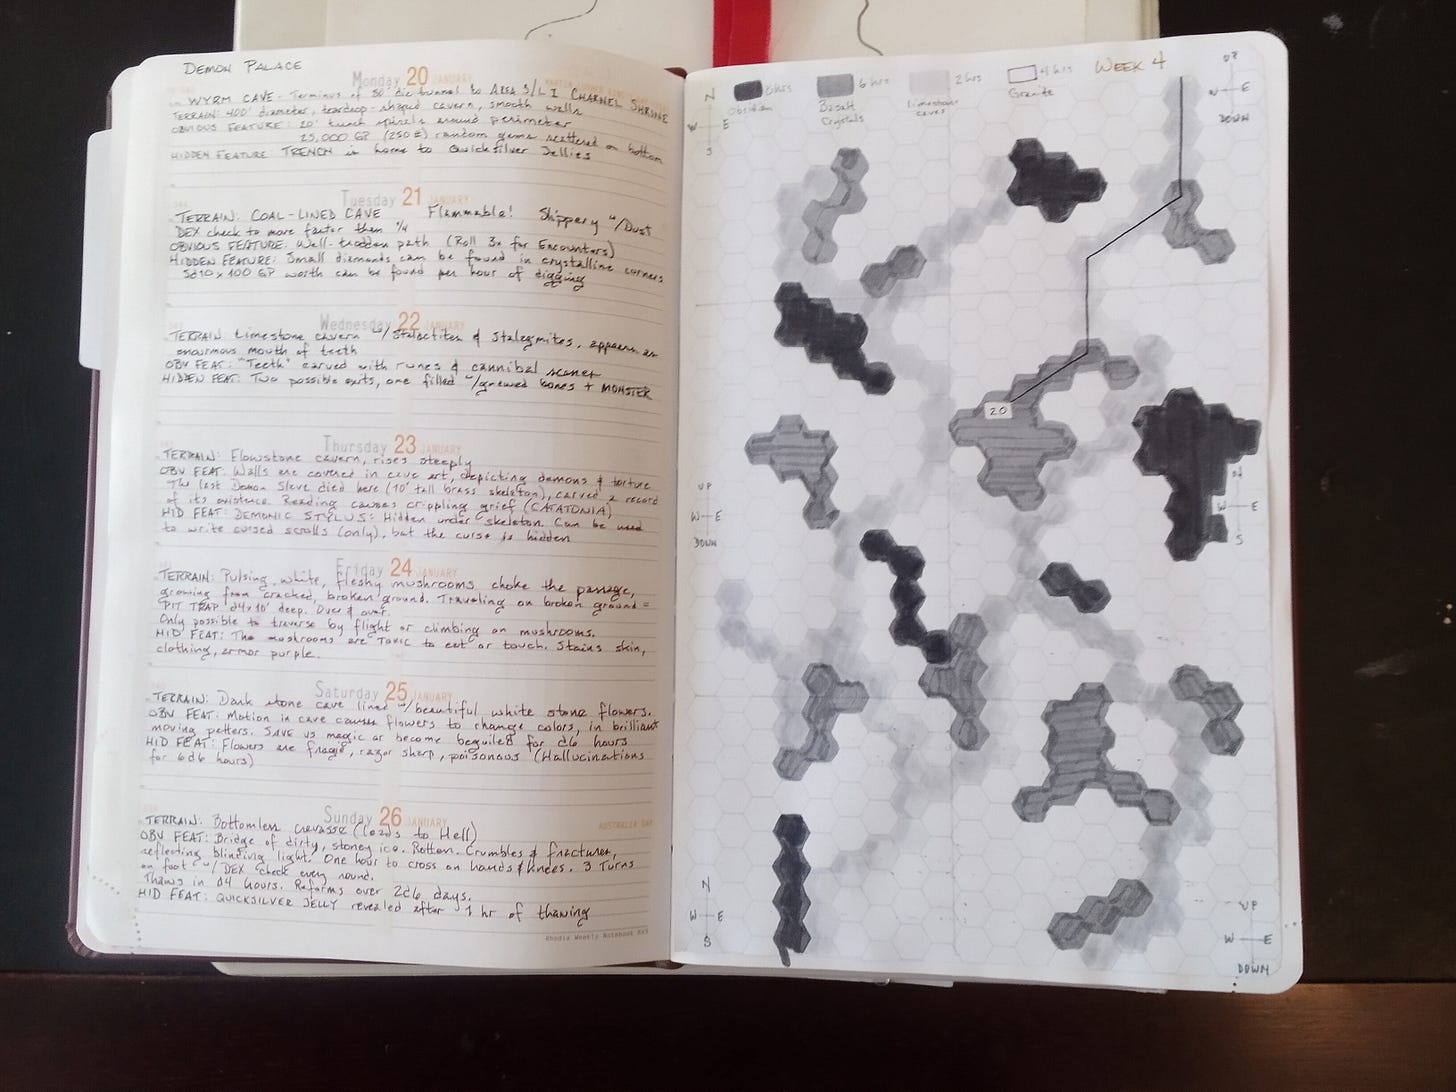 DEMON PALACE
Monday 20 JANUARY
WYRM CAVE - Terminus of 50' die tunnel to AREA S/L I CHARNEL SHRINE
TERRAIN: 400' diameter, teardrop-shaped cavern, smooth walls
OBVIOUS FEATURE: 20' trench spirals around perimeter
25,000 GP (250#) random gems scattered on bottom
HIDDEN FEATURE TRENCH is home to Quicksilver Jellies
Tuesday 21 JANUARY
TERRAIN: COAL-LINED CAVE Flammable! Slippery w/Dust
DEX check to move faster than 1/4
OBVIOUS FEATURE: Well-trodden path (Roll 3x for Encounters)
HIDDEN FEATURE: Small diamonds can be found in crystalline corners
5d10 x 100 GP worth can be found per hour of digging
Wednesday 22 JANUARY
TERRAIN: Limestone cavern w/stalactites & stalegmites, appears as
enourmous mouth of teeth
OBV FEAT: "Teeth" carved with runes & cannibal scenes
HIDDEN FEAT: Two possible exits, one filled w/gnawed bones + MONSTER
Thursday 23 JANUARY
TERRAIN: Flowstone cavern, rises steeply
OBV FEAT. Walls are covered in cave art, depicting demons & torture
The last Demon Slave died here (10' tall brass skeleton), carved a record
of its existence. Reading causes crippling grief (CATATONIA)
HID FEAT: DEMONIC STYLUS: Hidden under skeleton. Can be used
to write cursed scrolls (only), but the curse is hidden
Friday 24 JANUARY
TERRAIN: Pulsing, white, fleshy mushrooms choke the passage,
growing from cracked, broken ground. Traveling on broken ground =
PIT TRAP d4x10' deep. Over & over.
Only possible to traverse by flight or climbing on mushrooms.
HID FEAT: The mushrooms are toxic to eat or touch. Stains skin,
clothing, armor purple.
Saturday 25 JANUARY
TERRAIN: Dark stone cave lined w/beautiful white stone flowers.
OBV FEAT: Motion in cave causes flowers to change colors, in brilliant
moving patters. SAVE vs magic or become beguiled for d6 hours
HID FEAT: Flowers are fragile, razor sharp, poisonous (Hallucinations
for 6d6 hours)
Sunday 26 JANUARY
AUSTRALIA DAY
TERRAIN: Bottomless crevasse (leads to Hell)
OBV FEAT: Bridge of dirty, stoney ice. Rotten. Crumbles & fractures,
reflecting blinding light. One hour to cross on hands & knees. 3 Turns
on foot w/ DEX check every round.
Thaws in d4 hours. Reforms over 2d6 days.
HID FEAT: QUICKSILVER JELLY revealed after 1 hr of thawing
Rhodia Weekly Notebook
N
W E
S
8hrs
Obsidian
6 hrs
Basalt
Crystals
2 hrs
limestone
caves
4 hrs
Granite
WEEK 4
UP
W E
DOWN
20
UP
W E
DOWN
N
W E
S
N
W E
S
UP
W E
DOWN